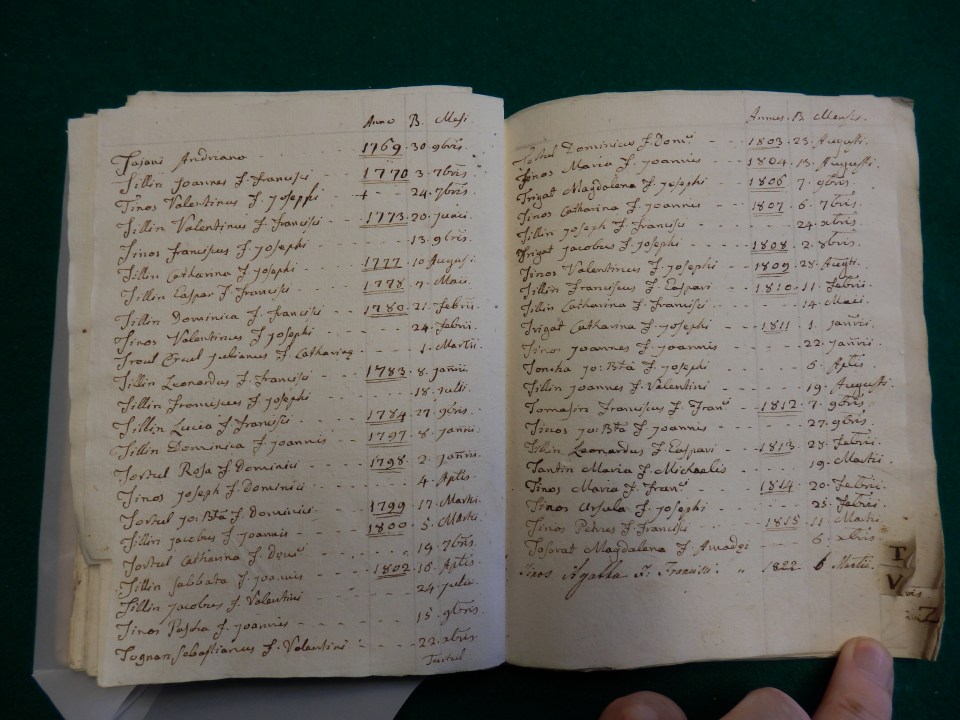 Anno B. Mesi
Tajani Andriano - 1769. 30 9bris.
Tillin Joannes f. Francisci - - - 1770. 3. 7bris.
Tinos Valentinus f. Josephi - + - 24. 7bris.
Tillin Valentinus f. Francisci - - - 1773. 20. Junii.
Tinos Franciscus f. Josephi - - - 13. 9bris.
Tillin Catharina f. Josephi - - - 1777. 10 Augusti.
Tillin Caspar f. Francisci - - - 1778. Maii.
Tillin Dominica f. Francisci - - - 1780. 21. Febrii.
Tinos Valentinus f. Josephi - - - 24. Febrii.
Julianus f. Catharinae - - - 1. Martii.
Tillin Leonardus f. Francisci - - - 1783. 8. Janrii.
Tillin Franciscus f. Josephi - - - 18. Julii.
Tillin Lucia f. Francisci - - - 1784. 27. 9bris.
Tillin Dominica f. Joannis - - - 1797. 8. Janrii.
Tortul Rosa f. Dominici - - - 1798. 2. Janrii.
Tinos Joseph f. Dominici - - - 4. Aplis.
Tortul Jo: Bta f. Dominici - - - 1799. 17. Martii.
Tillin Jacobus f. Joannis - - - 1800. 5. Martii.
Tortul Catharina f. - - - 19. 7bris.
Tillin Sabbata f. Joannis - - - 1802. 16. Aplis.
Tillin Jacobus f. Valentini - - - 24. Julii.
Tinos Pascha f. Joannis - - - 15. 9bris.
Tognan Sebastianus f. Valentini - - - 22. xbris.
Tortul
Annus. B. Mensis.
Tortul Dominicus f. - - - 1803. 23. Augusti.
Tinos Maria f. Joannis - - - 1804. 13. Augusti.
Trigat Magdalena f. Josephi - - - 1806. 7. 9bris.
Tinos Catharina f. Joannis - - - 1807. 6. 7bris.
Tillin Joseph f. Francisci - - - 24. xbris.
Trigat Jacobus f. Josephi - - - 1808. 2. 8bris.
Tinos Valentinus f. Josephi - - - 1809. 28. Augti.
Tillin Franciscus f. Caspari - - - 1810. 11. Febrii.
Tillin Catharina f. Francisci - - - 14. Maii.
Trigat Catharina f. Josephi - - - 1811. 1. Janrii.
Tinos Joannes f. Joannis - - - 22. Janrii.
Toncha Jo: Bta f. Josephi - - - 6. Aplis.
Tillin Joannes f. Valentini - - - 19. Augusti.
Tomasin Franciscus f. - - - 1812. 7. 9bris.
Tinos Jo: Bta f. Joannis - - - 27. 9bris.
Tillin Leonardus f. Caspari - - - 1813. 28. Febrii.
Tantin Maria f. Michaelis - - - 19. Martii.
Tinos Maria f. - - - 1814. 20. Febrii.
Tinos Ursula f. Josephi - - - 25. Febrii.
Tinos Petrus f. Francisci - - - 1815. 11. Martii.
Tosorat Magdalena f. Amadei - - - 6. xbris.
Tinos Agatha f. Francisci - 1822 6 Martii.
T
V
Z